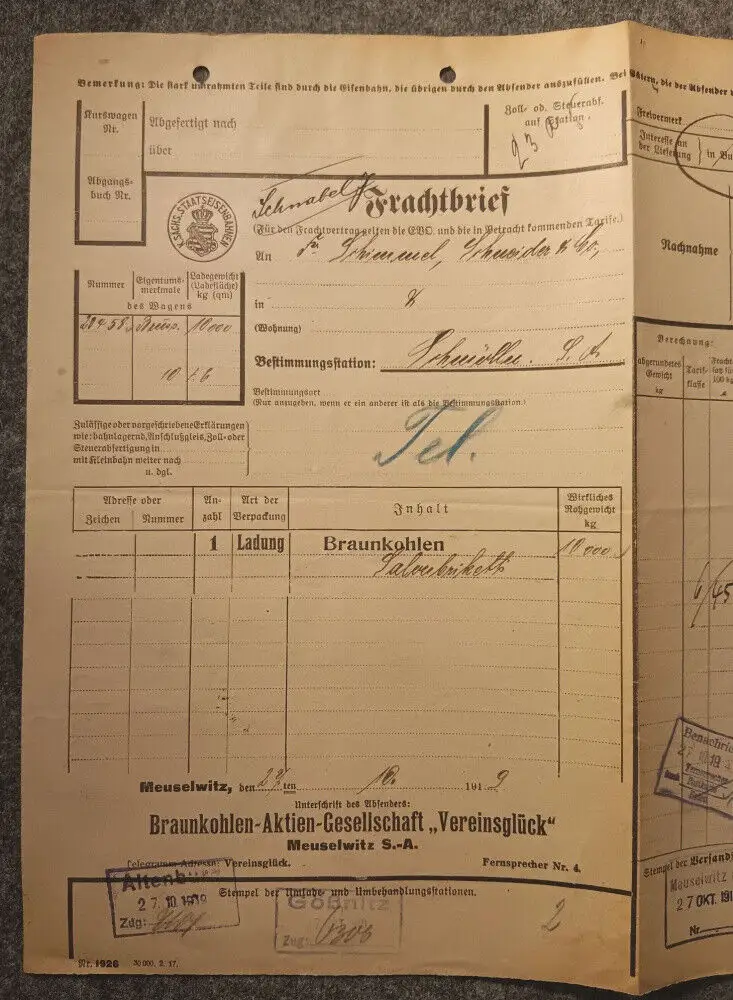 Bemerkung: Die stark umrahmten Teile sind durch die Eisenbahn, die übrigen durch den Absender auszufüllen. Bei Gütern, die der Absender
Kurswagen Nr.
Abgefertigt nach
über
Zoll- od. Steuerabf. auf Station.
Abgangsbuch Nr.
SÄCHS. STAATSEISENBAHNEN
Schnabel
Frachtbrief
(Für den Frachtvertrag gelten die EVO. und die in Betracht kommenden Tarife.)
An Fa Schimmel, Schneider & Co,
in
(Wohnung)
Nummer
Eigentumsmerkmale
Ladegewicht (Ladefläche) kg (qm)
des Wagens
10000
Bestimmungsstation: Schmölln. S. A.
Bestimmungsort
(Nur anzugeben, wenn er ein anderer ist als die Bestimmungsstation.)
Zulässige oder vorgeschriebene Erklärungen
wie: bahnlagernd, Anschlußgleis, Zoll- oder
Steuerabfertigung in
mit Kleinbahn weiter nach
u. dgl.
Tel.
Adresse oder
Zeichen
Nummer
Anzahl
Art der Verpackung
Inhalt
Wirkliches Rohgewicht kg
1 Ladung Braunkohlen 10000
Salonbriketts
Meuselwitz, den 27ten 10. 1919
Unterschrift des Absenders:
Braunkohlen-Aktien-Gesellschaft „Vereinsglück"
Meuselwitz S.-A.
Telegramm-Adresse: Vereinsglück.
Fernsprecher Nr. 4.
Stempel der Umlade- und Umbehandlungsstationen.
Altenburg
27.10.1919
Zug:
Gößnitz
Zug: 6308
2
Nr. 1926 30 000. 2. 17.
Freivermerk
Interesse an der Lieferung
in
Nachnahme
Berechnung:
abgerundetes Gewicht kg
Tarifklasse
Stempel der Versand
Meuselwitz
27 OKT. 191
Nr.